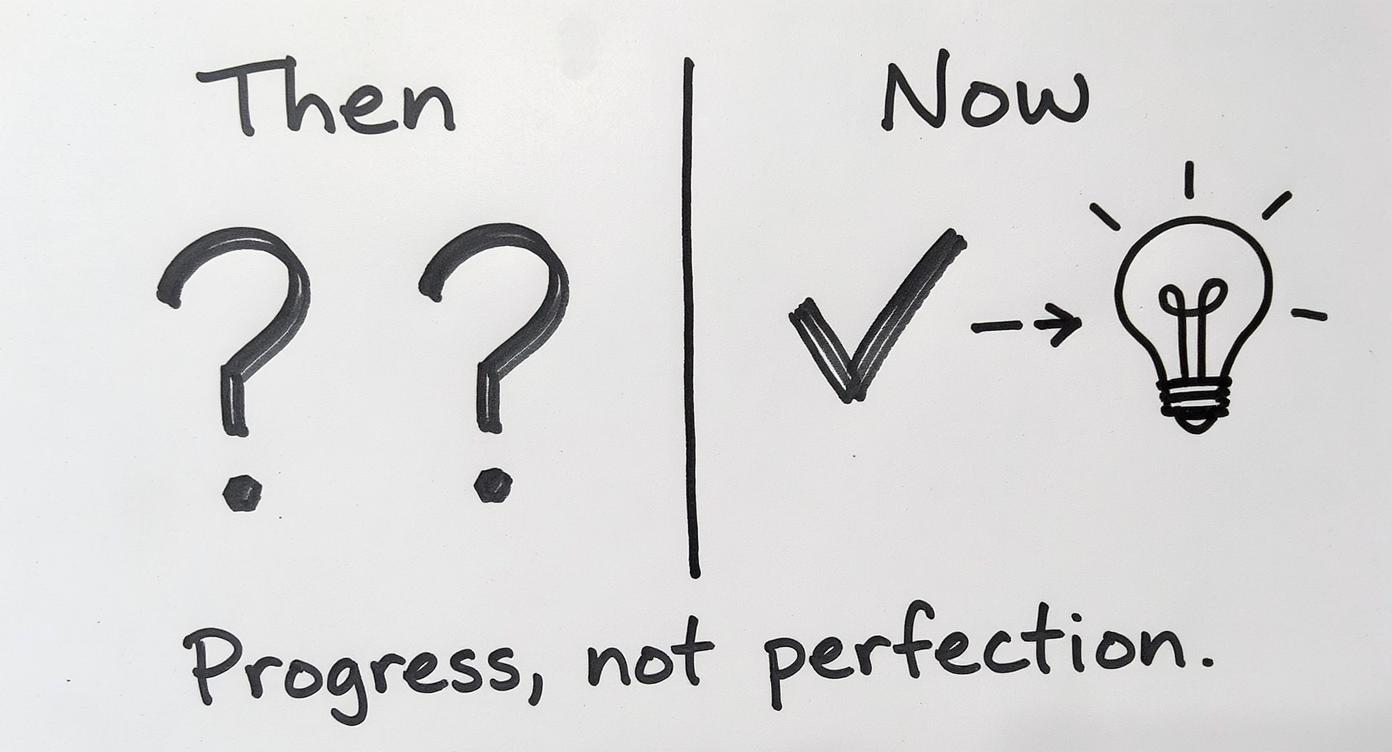 Then
Now
? ?
Progress, not perfection.